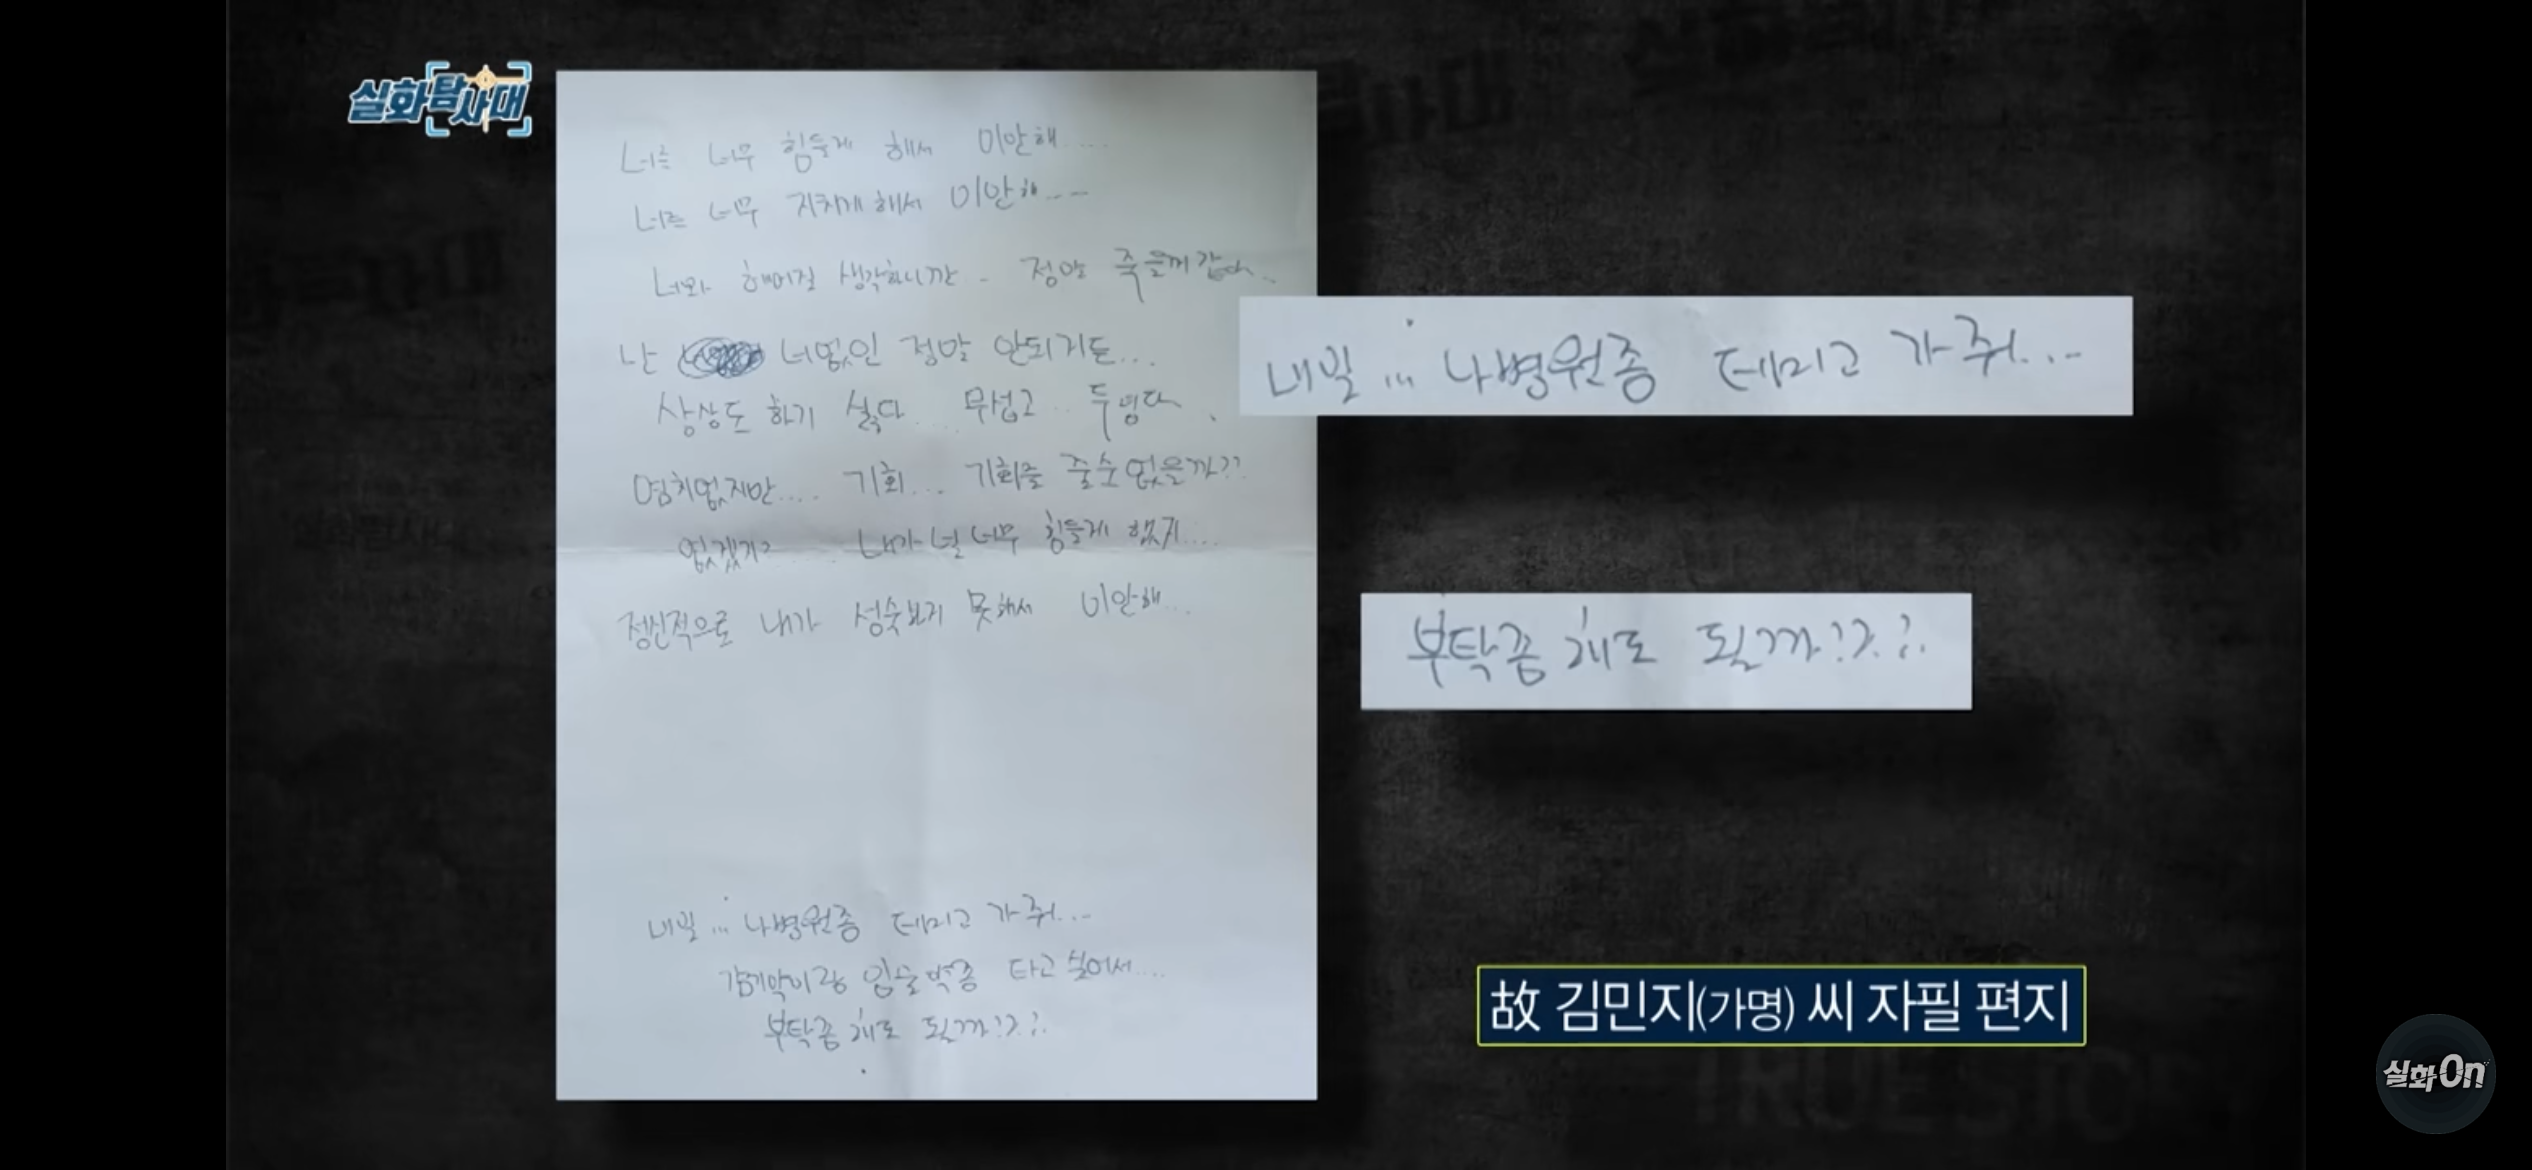 실화탐사대
너를 너무 힘들게 해서 미안해....
너를 너무 지치게 해서 미안해...
너와 헤어질 생각하니깐.. 정말 죽을꺼같다..
난 너없인 정말 안되거든...
상상도 하기 싫다.... 무섭고.. 두렵다.
염치없지만.... 기회... 기회를 줄수 없을까??
없겠지? ...... 내가 널 너무 힘들게 했지....
정신적으로 내가 성숙하지 못해서 미안해...
내일 ... 나병원좀 데리고 가줘...
감기약이랑 입술약좀 타고 싶어서....
부탁좀 해도 될까!?.?.
내일 ... 나병원좀 데리고 가줘...
부탁좀 해도 될까!?.?.
故 김민지(가명) 씨 자필 편지
실화On